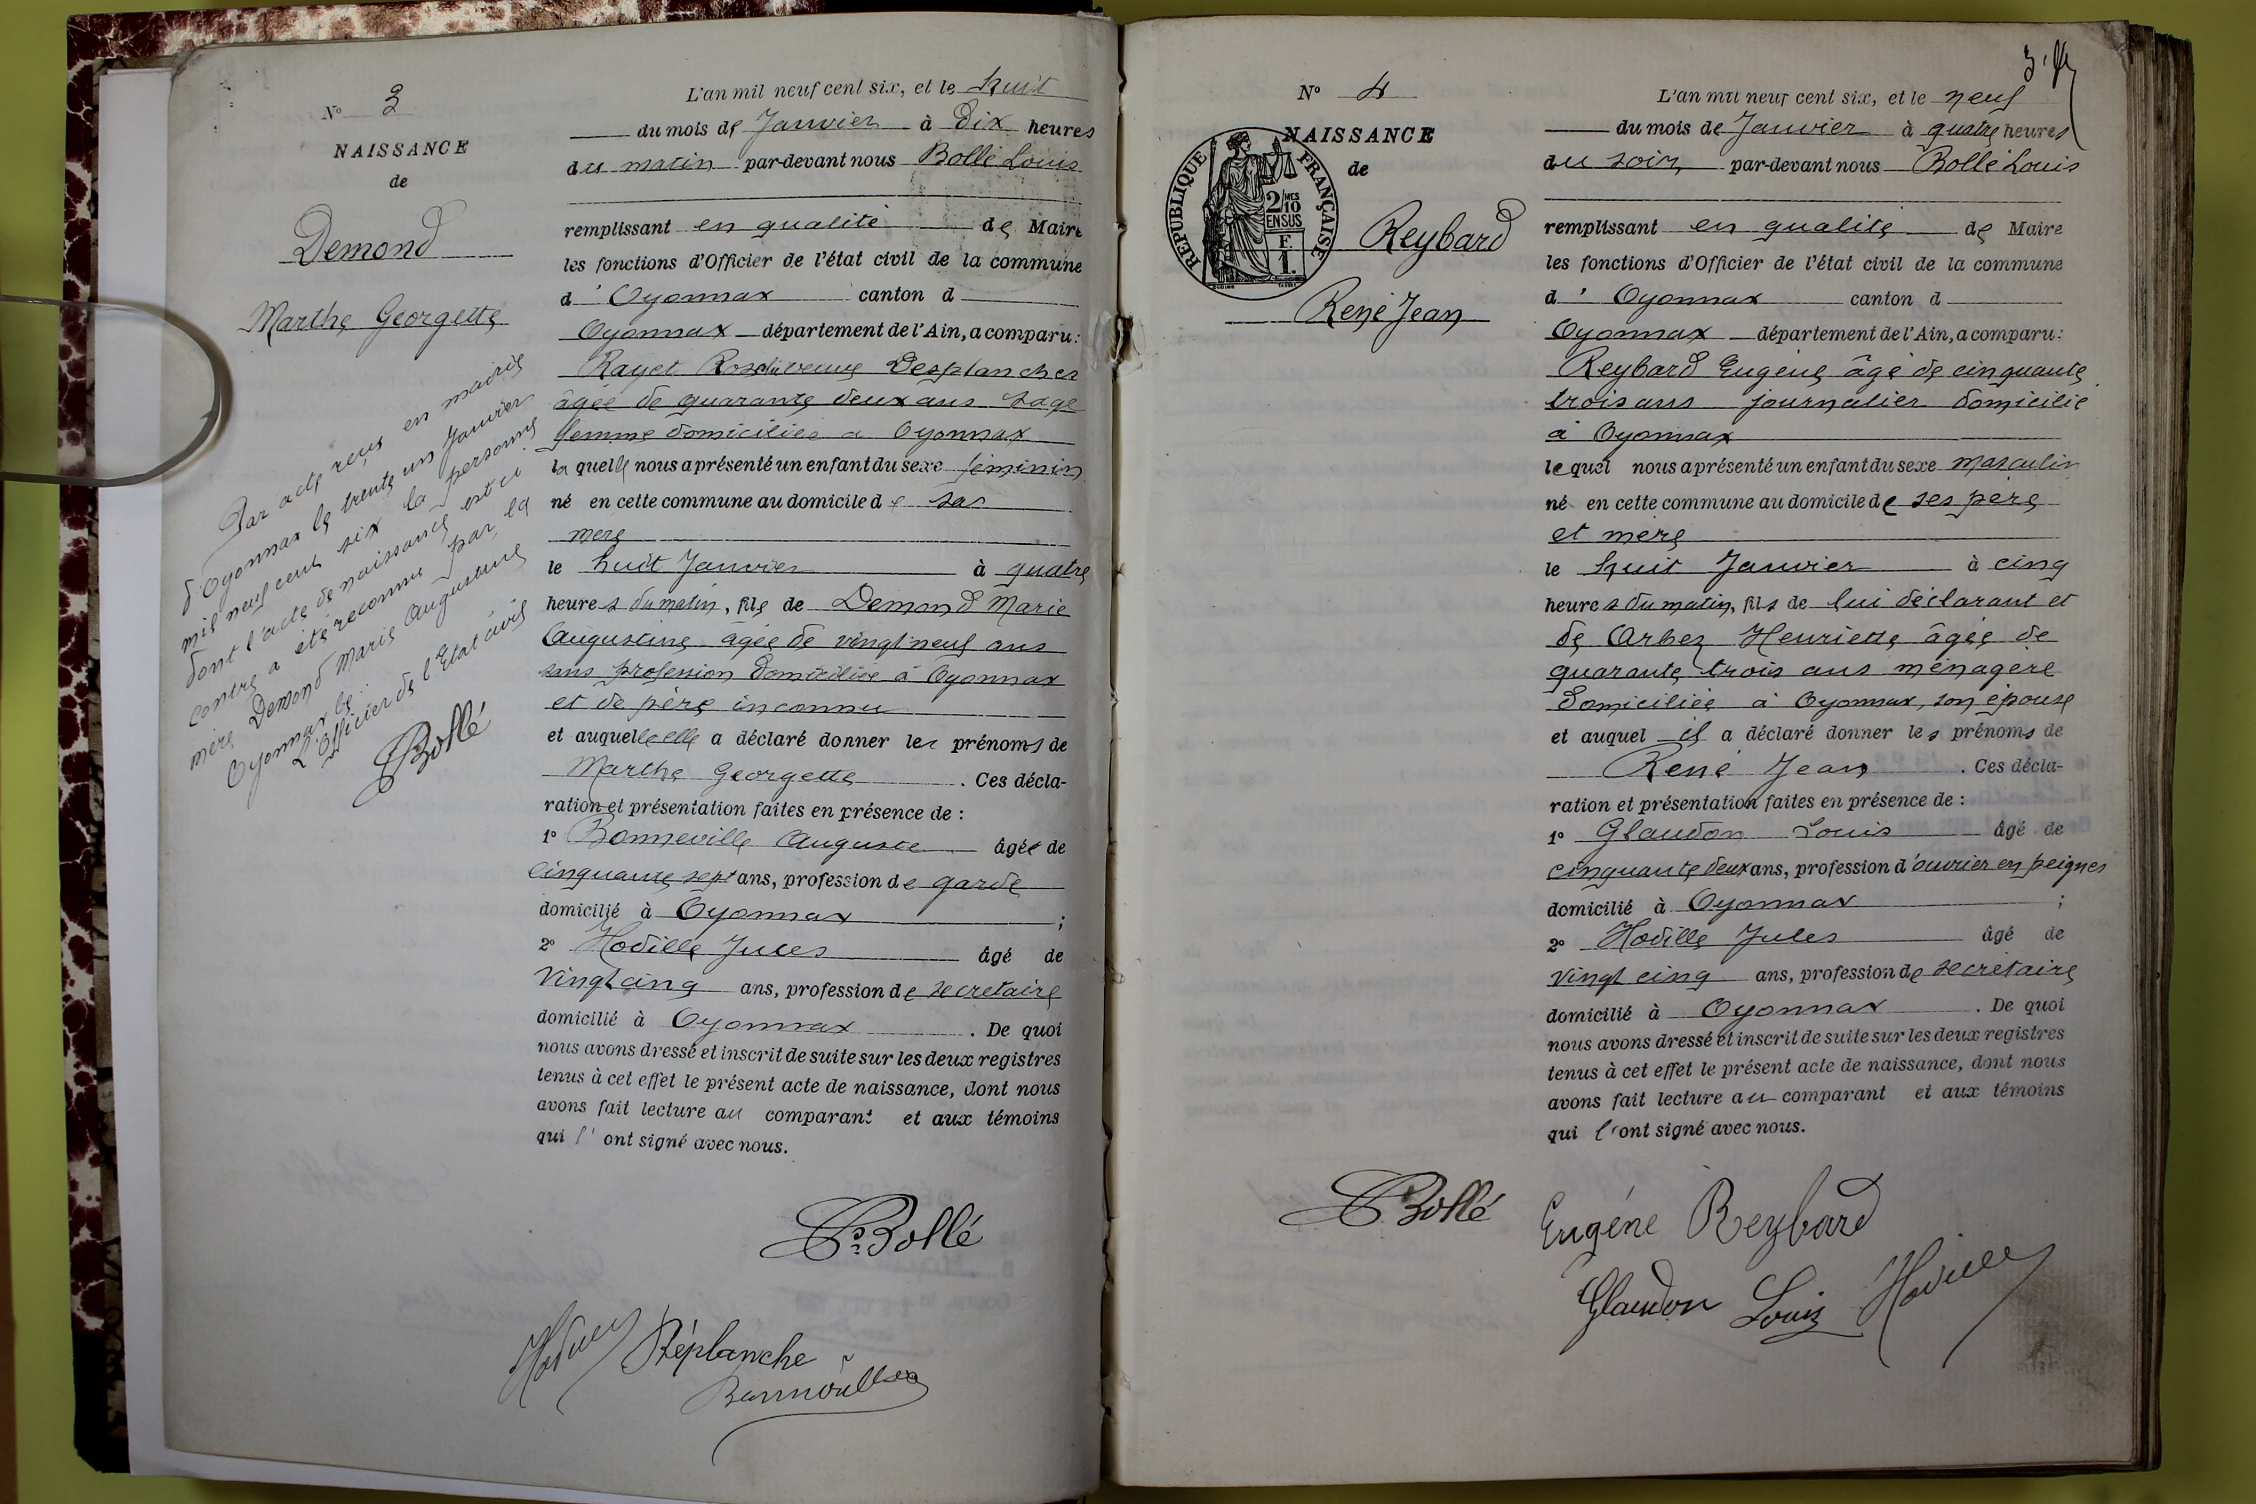 N° 3
NAISSANCE
de
Demond
Marthe Georgette
Par acte reçu en mairie
d'Oyonnax le trente un Janvier
mil neuf cent six la personne
dont l'acte de naissance est ci
contre a été reconnue par la
mère Demond Marie Augustine
Oyonnax le
L'Officier de l'Etat civil
Bollé
L'an mil neuf cent six, et le huit
du mois de Janvier à Dix heures
du matin par-devant nous Bollé Louis
remplissant en qualité de Maire
les fonctions d'Officier de l'état civil de la commune
d' Oyonnax canton d
Oyonnax département de l'Ain, a comparu:
Rayet veuve Desplanches
âgée de quarante deux ans sage
femme domiciliée a Oyonnax
la quelle nous a présenté un enfant du sexe féminin
né en cette commune au domicile de sas
mère
le huit Janvier à quatre
heures du matin, fils de Demond Marie
Augustine âgée de vingt neuf ans
sans profession domiciliée à Oyonnax
et de père inconnu
et auquelle elle a déclaré donner les prénoms de
Marthe Georgette . Ces décla-
ration et présentation faites en présence de :
1° Bonneville Auguste âgée de
Cinquante sept ans, profession de garde
domicilié à Oyonnax ;
2° Hodille Jules âgé de
Vingt cinq ans, profession de secretaire
domicilié à Oyonnax . De quoi
nous avons dressé et inscrit de suite sur les deux registres
tenus à cet effet le présent acte de naissance, dont nous
avons fait lecture au comparant et aux témoins
qui l' ont signé avec nous.
Bollé
Déplanche
3.
N° 4
NAISSANCE
de
REPUBLIQUE FRANÇAISE
2/10
MES
EN SUS
F.
1.
Reybard
René Jean
L'an mil neuf cent six, et le neuf
du mois de Janvier à quatre heures
du soir par-devant nous Bollé Louis
remplissant en qualité de Maire
les fonctions d'Officier de l'état civil de la commune
d' Oyonnax canton d
Oyonnax département de l'Ain, a comparu:
Reybard Eugène âgé de cinquante
trois ans journalier domicilié
à Oyonnax
le quel nous a présenté un enfant du sexe masculin
né en cette commune au domicile de ses père
et mère
le huit Janvier à cinq
heures du matin, fils de lui déclarant et
de Arbez Henriette âgée de
quarante trois ans ménagère
domiciliée à Oyonnax, son épouse
et auquel il a déclaré donner les prénoms de
René Jean . Ces décla-
ration et présentation faites en présence de :
1° Glaudon Louis âgé de
cinquante deux ans, profession d'ouvrier en peignes
domicilié à Oyonnax ;
2° Hodille Jules âgé de
Vingt cinq ans, profession de secrétaire
domicilié à Oyonnax . De quoi
nous avons dressé et inscrit de suite sur les deux registres
tenus à cet effet le présent acte de naissance, dont nous
avons fait lecture au comparant et aux témoins
qui l'ont signé avec nous.
Bollé
Eugéne Reybard
Glaudon Louis Hodille